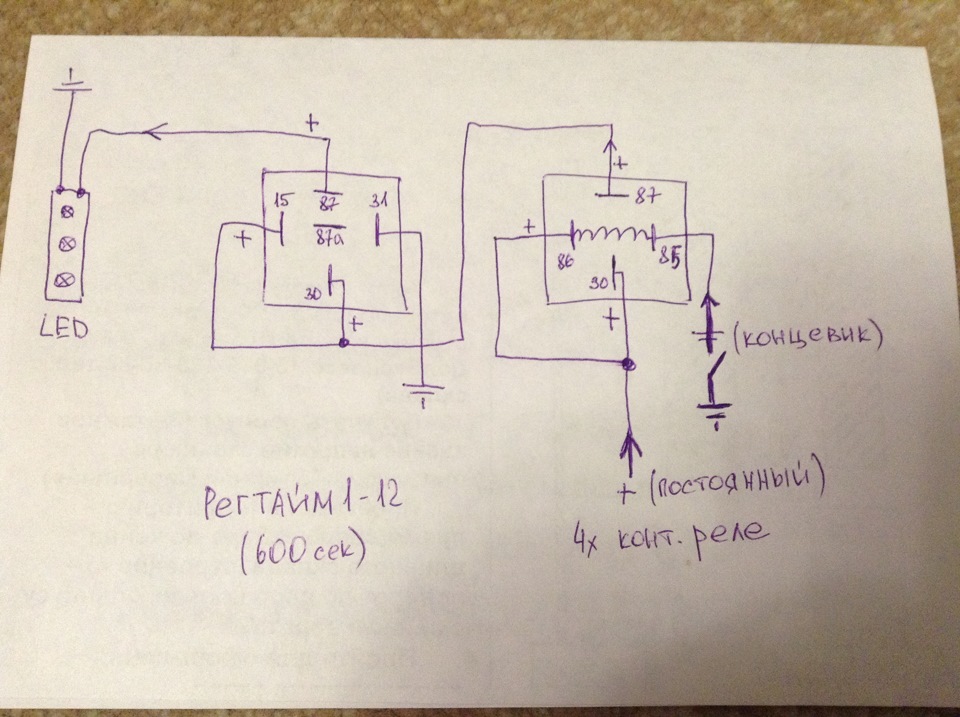 +
15
87
31
+
87a
30
+
LED
+
87
+
86
85
30
+
(КОНЦЕВИК)
+ (ПОСТОЯННЫЙ)
4х конт. реле
РегТАЙМ 1-12
(600 сек)